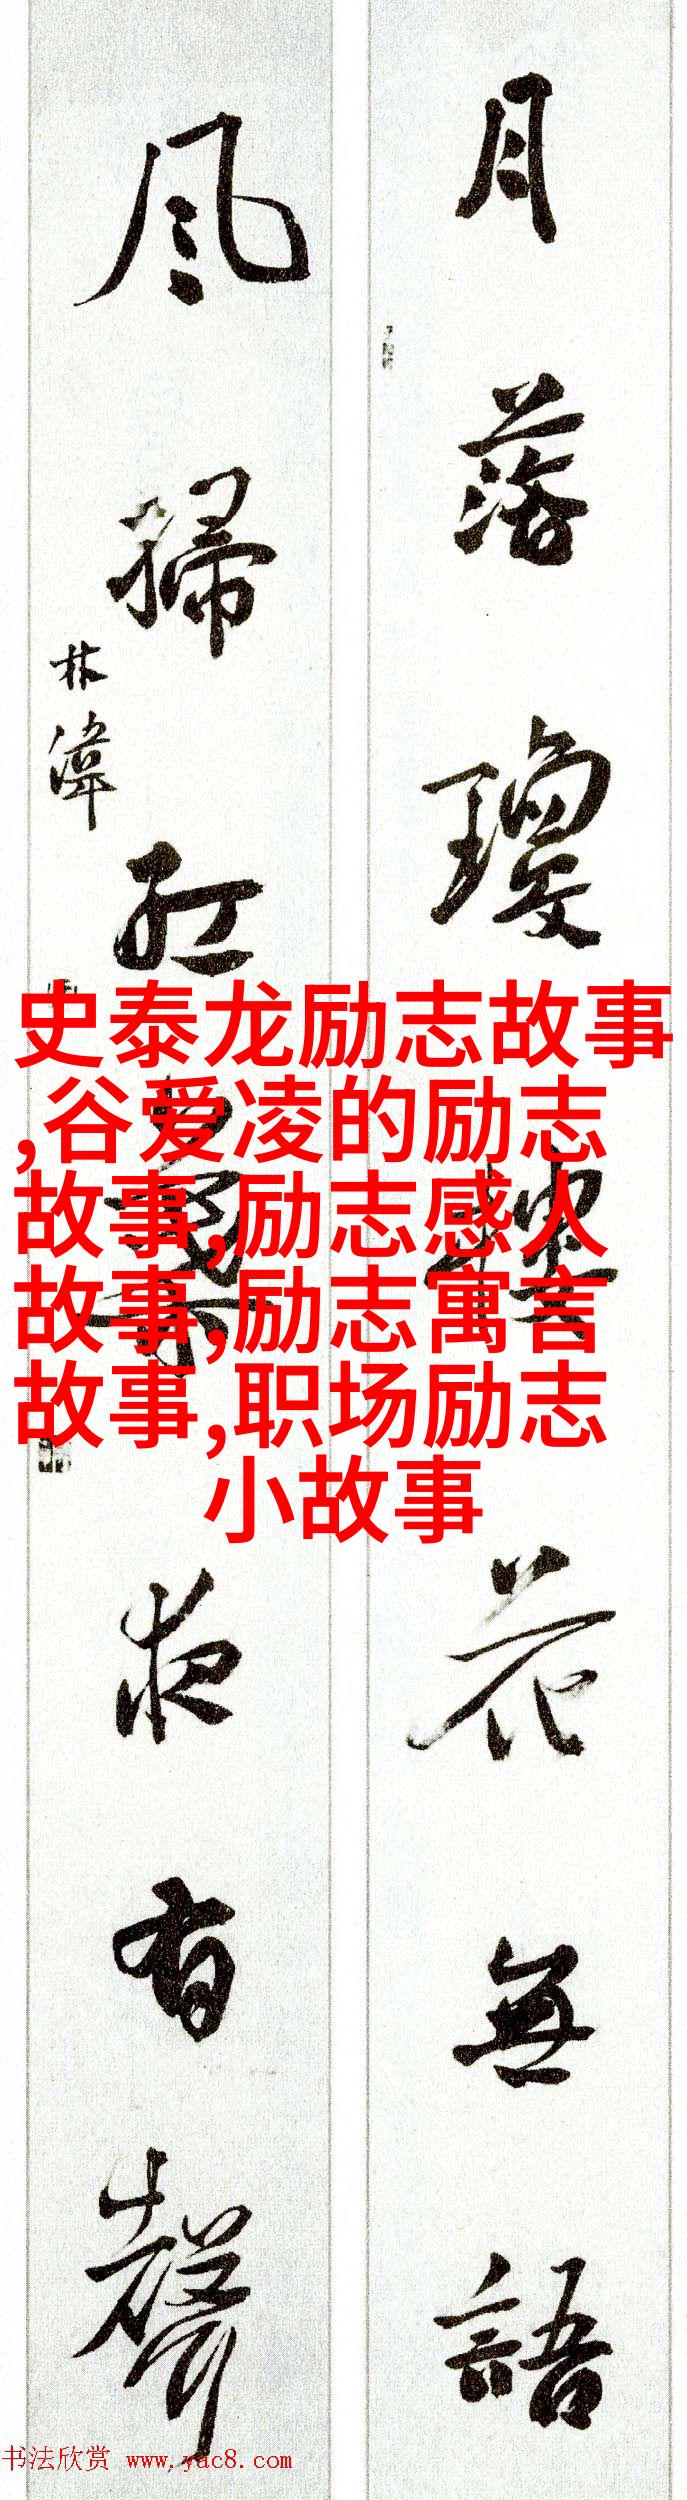 月落瓊樓花無語
風掃紅葉夜有聲
林偉
史泰龙励志故事
,谷爱凌的励志
故事,励志感人
故事,励志寓言
故事,职场励志
小故事
书法欣赏 www.yac8.com